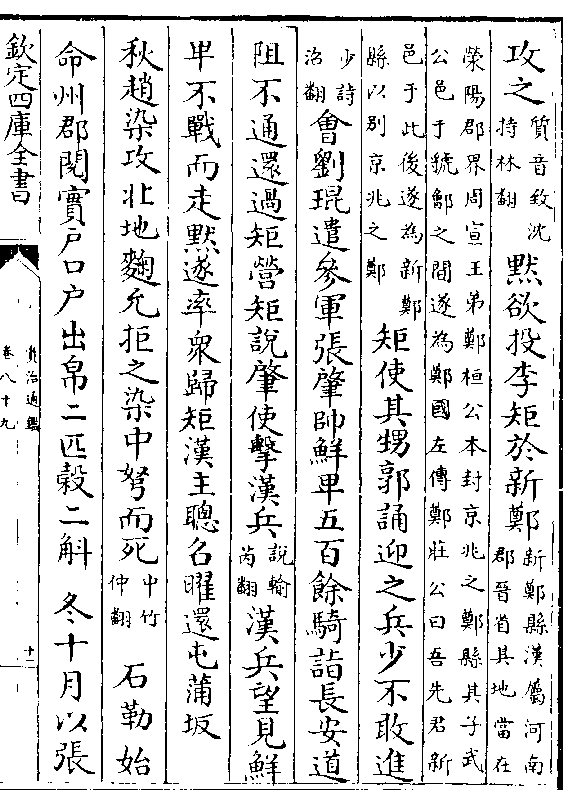 攻之質音致沈持林翻黙欲投李矩於新鄭新鄭縣漢屬河南郡晉省其地當在
滎陽郡界周宣王弟鄭桓公本封京兆之鄭縣其子武公邑于虢鄶之間遂為鄭國左傳鄭莊公曰吾先君新
邑于此後遂為新鄭縣以别京兆之鄭矩使其甥郭誦迎之兵少不敢進
少詩沼翻會劉琨遣參軍張肇帥鮮卑五百餘騎詣長安道
阻不通還過矩營矩說肇使擊漢兵說輸芮翻漢兵望見鮮
卑不戰而走黙遂率衆歸矩漢主聰召曜還屯蒲坂
秋趙染攻北地麴允拒之染中弩而死中竹仲翻 石勒始
命州郡閱實戶口戶出帛二匹榖二斛 冬十月以張
欽定四庫全書
資治通鑑
卷八十九